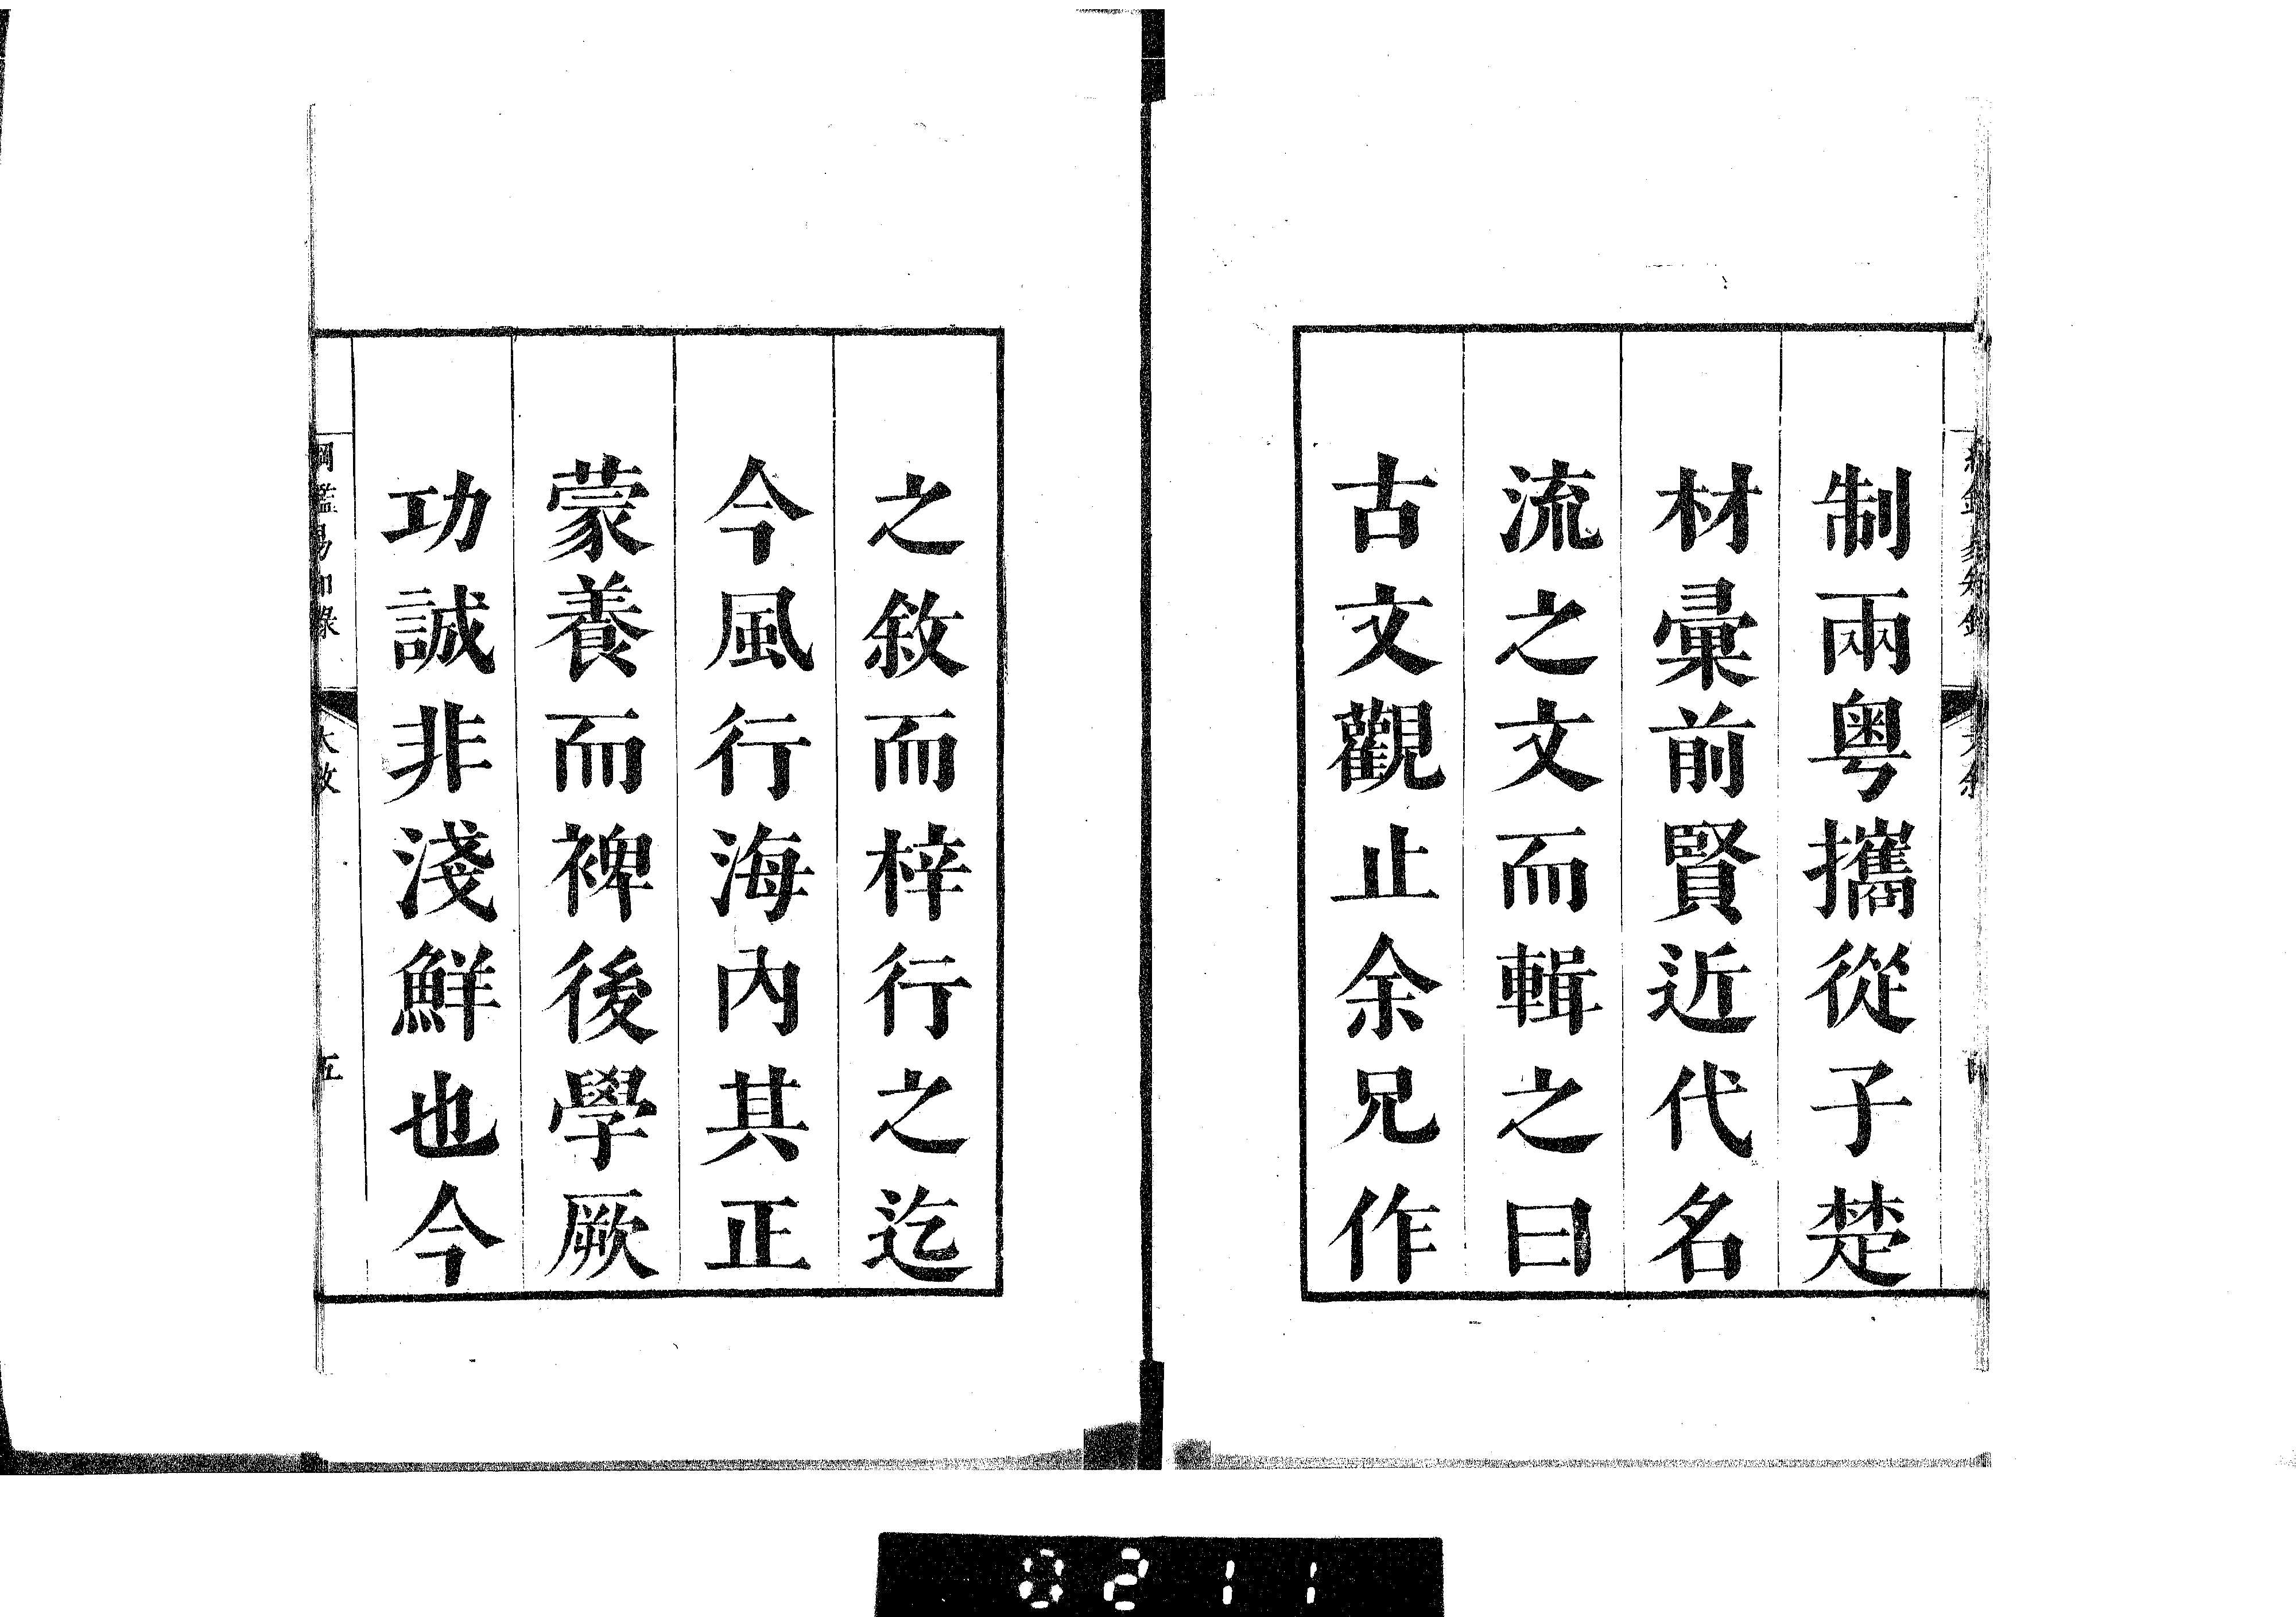 制兩粤攜從子楚
材彙前賢近代名
流之文而輯之曰
古文觀止余兄作
之敘而梓行之迄
今風行海內其正
蒙養而裨後學厥
功誠非淺鮮也今
綱鑑易知錄
大敘
五
0211